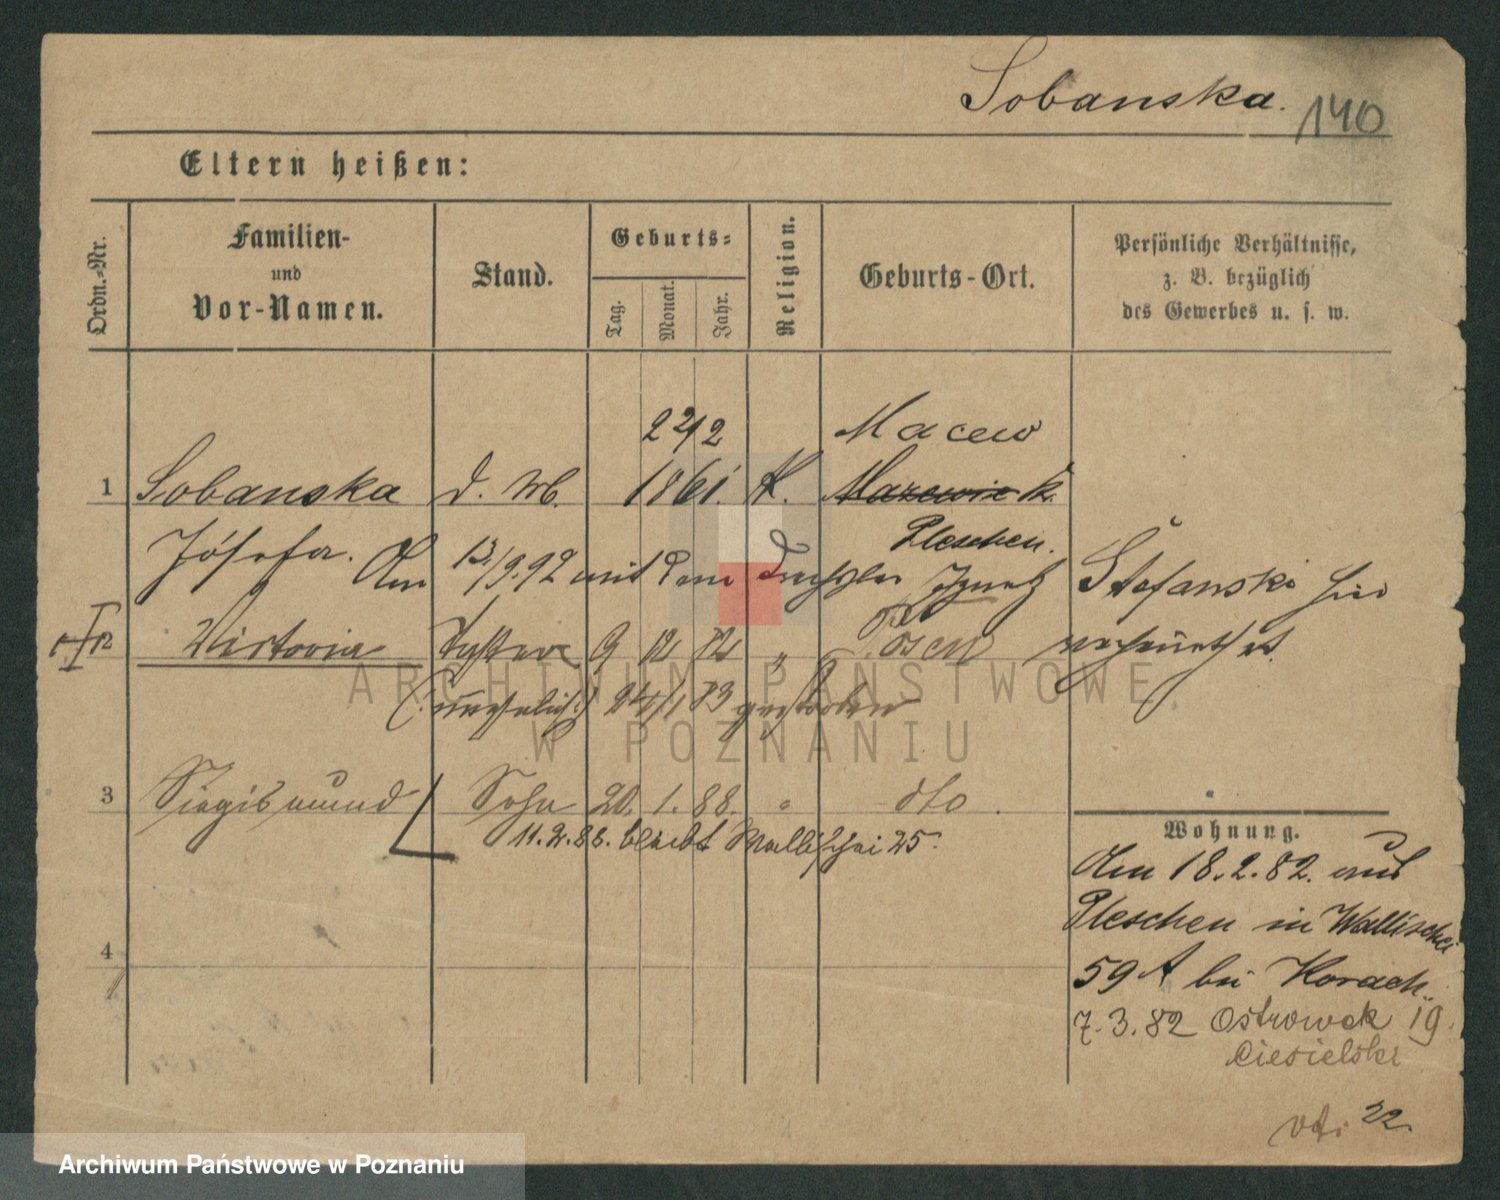 Sobanska. 140
Eltern heißen:
Ordn.-Nr.
Familien- und Vor-Namen.
Stand.
Geburts-
Tag.
Monat.
Jahr.
Religion.
Geburts-Ort.
Persönliche Verhältnisse,
z. B. bezüglich
des Gewerbes u. s. w.
22/2 Macew
1 Sobanska d. 1861. K.
Pleschen.
Jósefa. Am 13./9.92 mit dem Drechsler Ignatz Stefanski hier
2 Victoria Tochter 9 12 82 " Posen verheirathet.
(unehelich) 24/1 83 gestorben
3 Siegismund Sohn 20. 1. 88. " dto.
11.2.88. bleibt Wallischei 25.
4
Wohnung.
Am 18.2.82. aus
Pleschen in Wallischei
59 A bei Korach.
7.3.82 Ostrowek 19.
Ciesielski
22.
ARCHIWUM PAŃSTWOWE
W POZNANIU
Archiwum Państwowe w Poznaniu